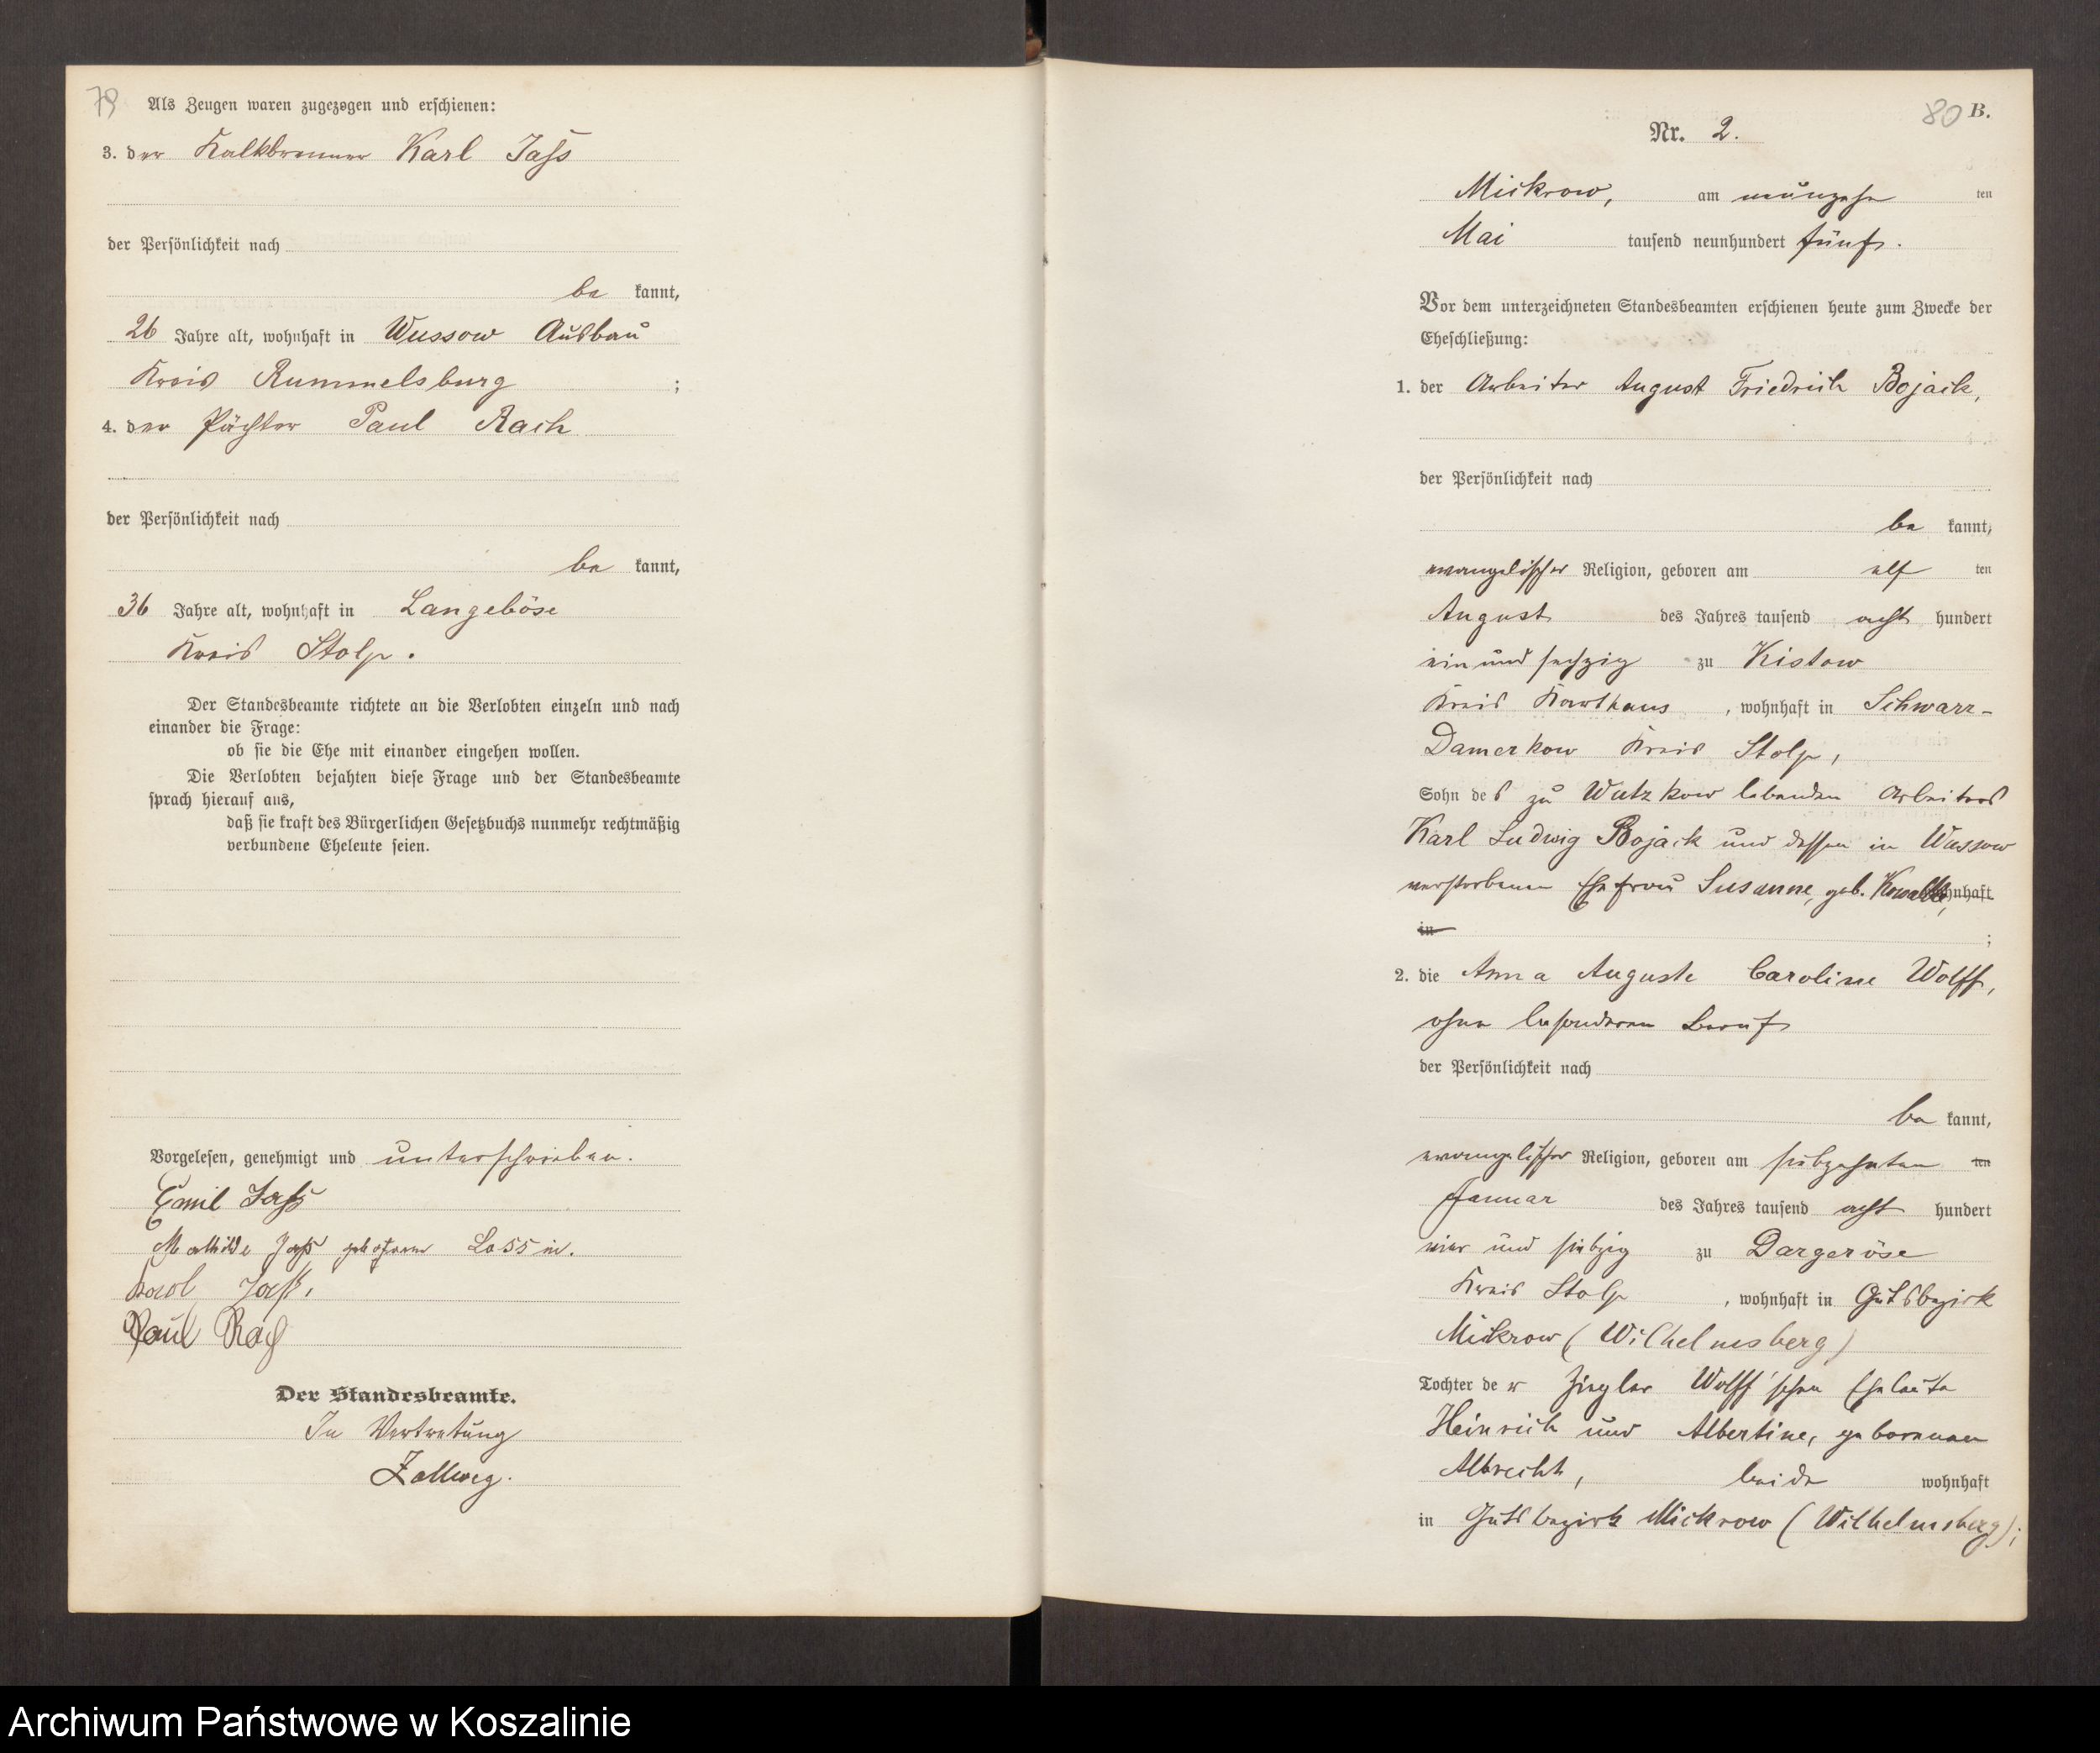 79
Als Zeugen waren zugezogen und erschienen:
3. der Kalkbrenner Karl Jass
der Persönlichkeit nach
be kannt,
26 Jahre alt, wohnhaft in Wussow Ausbau
Kreis Rummelsburg ;
4. der Pächter Paul Rach
der Persönlichkeit nach
be kannt,
36 Jahre alt, wohnhaft in Langeböse
Kreis Stolp.
Der Standesbeamte richtete an die Verlobten einzeln und nach
einander die Frage:
ob sie die Ehe mit einander eingehen wollen.
Die Verlobten bejahten diese Frage und der Standesbeamte
sprach hierauf aus,
daß sie kraft des Bürgerlichen Gesetzbuchs nunmehr rechtmäßig
verbundene Eheleute seien.
Vorgelesen, genehmigt und unterschrieben.
Emil Jaß
Mathilde Jaß geborene Lossin.
Karl Jaß,
Paul Rach
Der Standesbeamte.
In Vertretung
Zollweg.
80 B.
Nr. 2.
Mickrow, am neunzehn ten
Mai tausend neunhundert fünf.
Vor dem unterzeichneten Standesbeamten erschienen heute zum Zwecke der
Eheschließung:
1. der Arbeiter August Friedrich Bojack,
der Persönlichkeit nach
be kannt,
evangelischer Religion, geboren am elf ten
August des Jahres tausend acht hundert
ein und sechzig zu Kistow
Kreis Karthaus , wohnhaft in Schwarz-
Damerkow Kreis Stolp,
Sohn des zu Wutzkow lebenden Arbeiters
Karl Ludwig Bojack und dessen in Wussow
verstorbenen Ehefrau Susanne, geb. wohnhaft
in ;
2. die Anna Auguste Caroline Wolff,
ohne besonderen Beruf
der Persönlichkeit nach
be kannt,
evangelischer Religion, geboren am siebzehnten ten
Januar des Jahres tausend acht hundert
vier und siebzig zu Dargeröse
Kreis Stolp , wohnhaft in Gutsbezirk
Mickrow (Wilhelmsberg)
Tochter der Ziegler Wolff'schen Eheleute
Heinrich und Albertine, geborenen
Albrecht, beide wohnhaft
in Gutsbezirk Mickrow (Wilhelmsberg);
Archiwum Państwowe w Koszalinie